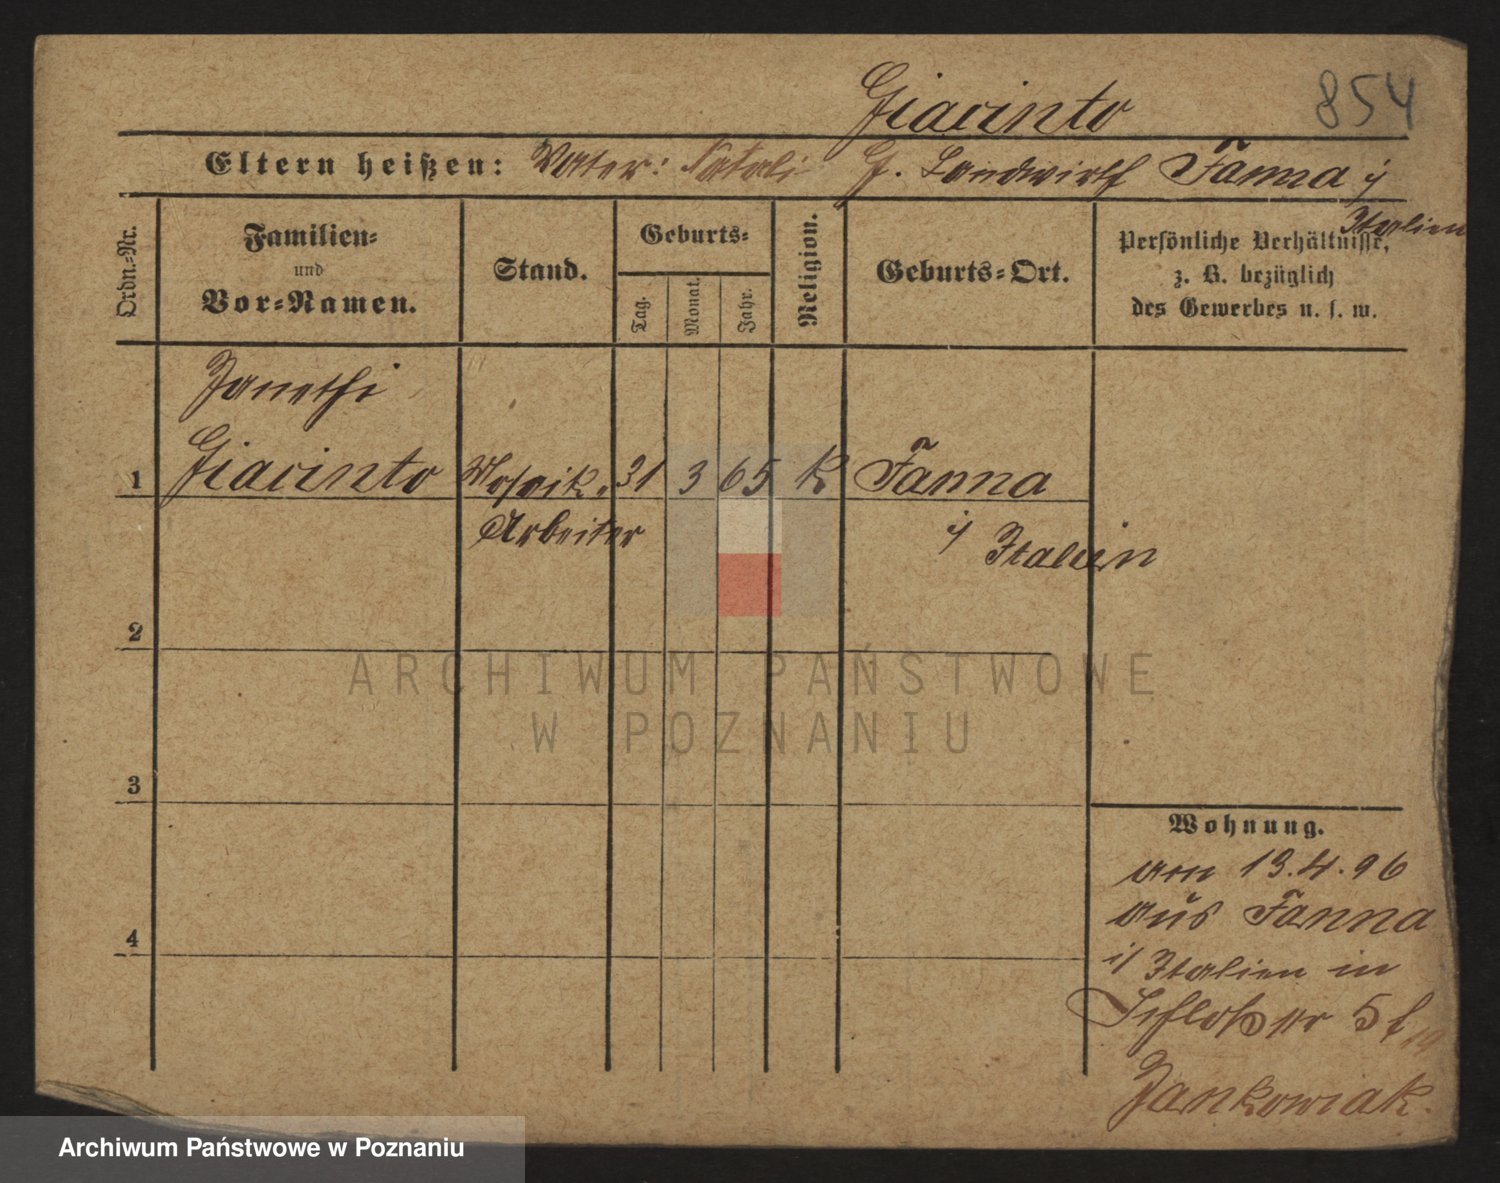 Giacinto
854
Eltern heißen: Vater: Natali G. Landwirth Fanna i/
Italien
Ordn.-Nr.
Familien-
und
Vor-Namen.
Stand.
Geburts-
Tag.
Monat.
Jahr.
Religion.
Geburts-Ort.
Persönliche Verhältnisse,
z. B. bezüglich
des Gewerbes u. s. w.
Zanethi
1 Giacinto Mosaik. 31 3 65 k Fanna
Arbeiter i/ Italien
2
ARCHIWUM PAŃSTWOWE
W POZNANIU
3
Wohnung.
am 13.4.96
aus Fanna
i/ Italien in
Schloßstr 5 b/
Jankowiak.
4
Archiwum Państwowe w Poznaniu